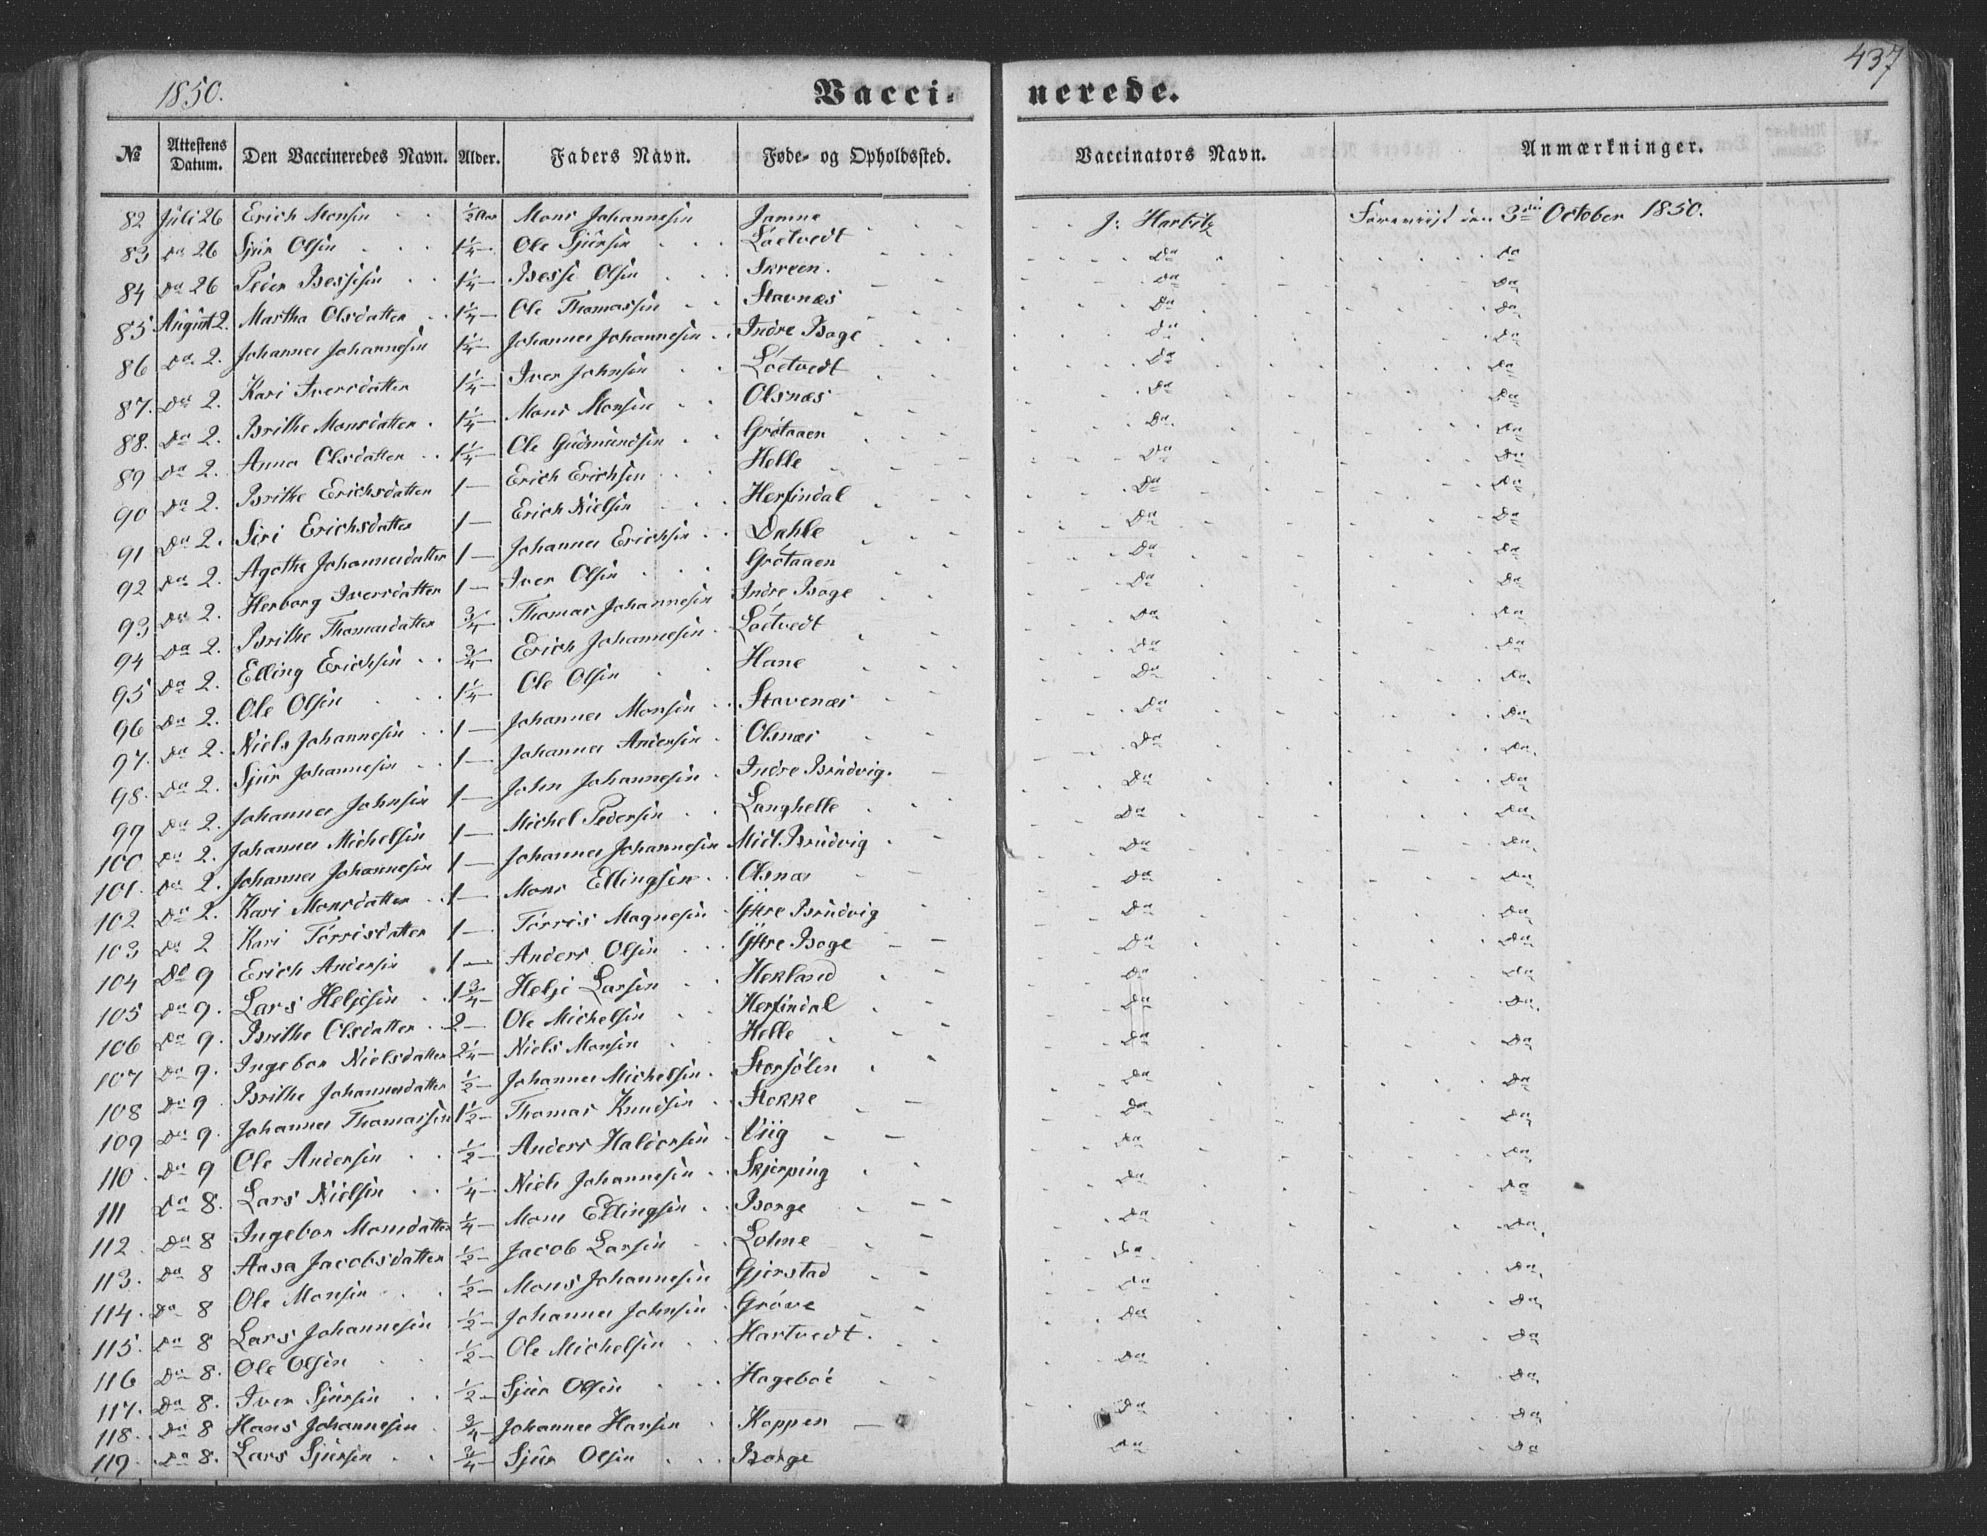 437
1850.
Vacci- nerede.
No Attestens Datum. Den Vaccineredes Navn. Alder. Faders Navn. Føde- og Opholdssted. Vaccinators Navn. Anmærkninger.
82 Juli 26 Erich Monsen ½ Aar Mons Johannesen Jamne J: Harbitz den 3die October 1850.
83 Do 26 Sjur Olsen 1¼ — Ole Sjursen Loetvedt Do Do
84 Do 26 Peder Bessesen 1¼ — Besse Olsen Skreen. Do Do
85 August 2. Martha Olsdatter 1¼ — Ole Thomassen Stavnæs Do Do
86 Do 2. Johannes Johannesen 1¼ — Johannes Johannesen Indre Boge Do Do
87. Do 2. Kari Iversdatter 1¼ — Iver Johnsen Loetvedt Do Do
88. Do 2. Brithe Monsdatter 1¼ — Mons Monsen Olsnæs Do Do
89 Do 2. Anna Olsdatter 1¼ — Ole Gudmundsen Grotaaen Do Do
90 Do 2. Brithe Erichsdatter 1 — Erich Erichsen Helle Do Do
91 Do 2. Siri Erichsdatter 1 — Erich Nielsen Herfindal Do Do
92 Do 2. Agathe Johannesdatter 1 — Johannes Erichsen Dahle Do Do
93 Do 2. Herborg Iversdatter 1 — Iver Olsen Grotaaen Do Do
94 Do 2. Brithe Thomasdatter ¾ — Thomas Johannesen Indre Boge Do Do
95 Do 2. Elling Erichsen ¾ — Erich Johannesen Loetvedt Do Do
96 Do 2. Ole Olsen 1¼ — Ole Olsen Hane Do Do
97. Do 2. Niels Johannesen 1 — Johannes Monsen Stavenæs Do Do
98. Do 2. Sjur Johannesen 1 — Johannes Andersen Olsnæs Do Do
99 Do 2. Johannes Johnsen 1 — John Johannesen Indre Brudvig. Do Do
100 Do 2. Johannes Michelsen 1 — Michel Pedersen Langhelle Do Do
101. Do 2. Johannes Johannesen 1 — Johannes Johannesen Midt Brudvig Do Do
102 Do 2. Kari Monsdatter 1 — Mons Ellingsen Olsnæs Do Do
103 Do 2 Kari Torrisdatter 1 — Torris Magnesen Yttre Brudvig Do Do
104 Do 9 Erich Andersen 1 — Anders Olsen Yttre Boge Do Do
105 Do 9. Lars Heljesen 1¾ — Helje Larsen Herland Do Do
106 Do 9. Brithe Olsdatter 2 — Ole Michelsen Herfindal Do Do
107 Do 9. Ingebor Nielsdatter 2¼ — Niels Monsen Helle Do Do
108 Do 9 Brithe Johannesdatter ½ — Johannes Michelsen Storsolen Do Do
109 Do 9. Johannes Thomassen 1½ — Thomas Knudsen Stokke Do Do
110. Do 9 Ole Andersen ½ — Anders Haldorsen Viig Do Do
111 Do 8. Lars Nielsen ¼ — Niels Johannesen Skjerping Do Do
112 Do 8 Ingebor Monsdatter ¼ — Mons Ellingsen Borge Do Do
113. Do 8 Aasa Jacobsdatter ½ — Jacob Larsen Lohne Do Do
114. Do 8 Ole Monsen ½ — Mons Johannesen Gjerstad Do Do
115. Do 8 Lars Johannesen ½ — Johannes Johnsen Grove Do Do
116 Do 8. Ole Olsen ½ — Ole Michelsen Hartvedt. Do Do
117. Do 8. Iver Sjursen ½ — Sjur Olsen Hageboe Do Do
118. Do 8 Hans Johannesen ¾ — Johannes Hansen Koppen Do Do
119. Do 8. Lars Sjursen ¾ — Sjur Olsen Borge Do Do